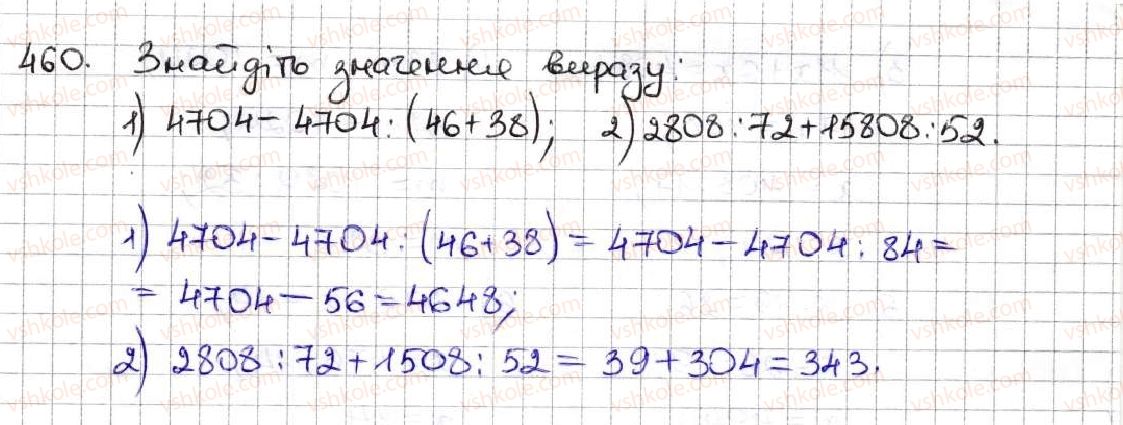 460. Знайдіть значення виразу:
1) 4704 - 4704 : (46 + 38); 2) 2808 : 72 + 15808 : 52.
1) 4704 - 4704 : (46 + 38) = 4704 - 4704 : 84 =
= 4704 - 56 = 4648;
2) 2808 : 72 + 1508 : 52 = 39 + 304 = 343.